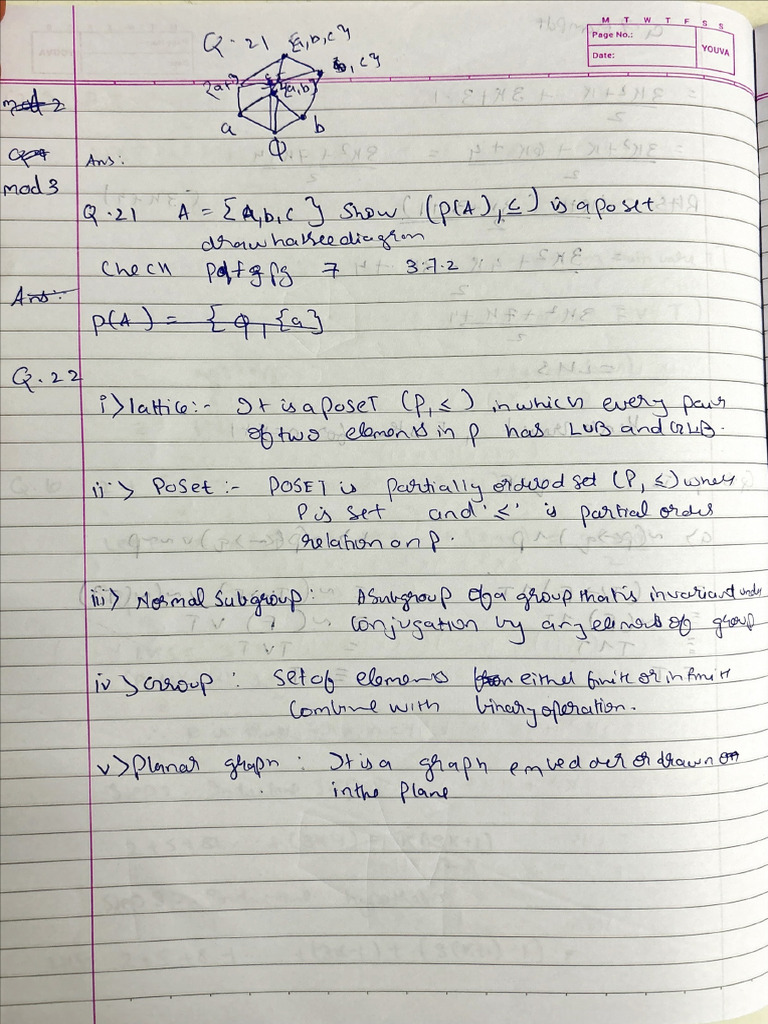 M T W T F S S
Page No.:
Date:
YOUVA
Q.21 {a,b,c}
b, c}
{a,b}
a
b
Φ
mod 2
Ans:
mod 3
Q.21 A = {A,b,c} Show (P(A), ≤) is a poset
draw hassee diagram
Check pg 7 3.7.2
Ans:-
P(A) = { Φ, {a}
Q.22
i> lattice:- It is a POSET (P, ≤) in which every pair
of two elements in P has LUB and GLB.
ii> Poset:- POSET is partially ordered set (P, ≤) where
P is set and '≤' is partial order
relation on P.
iii> Normal Subgroup: A Subgroup of a group that is invariant under
conjugation by any element of group
iv> Group: Set of elements either finite or infinite
combine with binary operation.
v> Planar graph: It is a graph or drawn on
in the plane